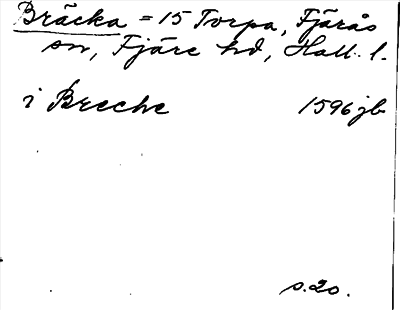 Bräcka = 15 Torpa, Fjärås
sn, Fjäre hd, Hall. l.
i Breche 1596 jb
s. 20.